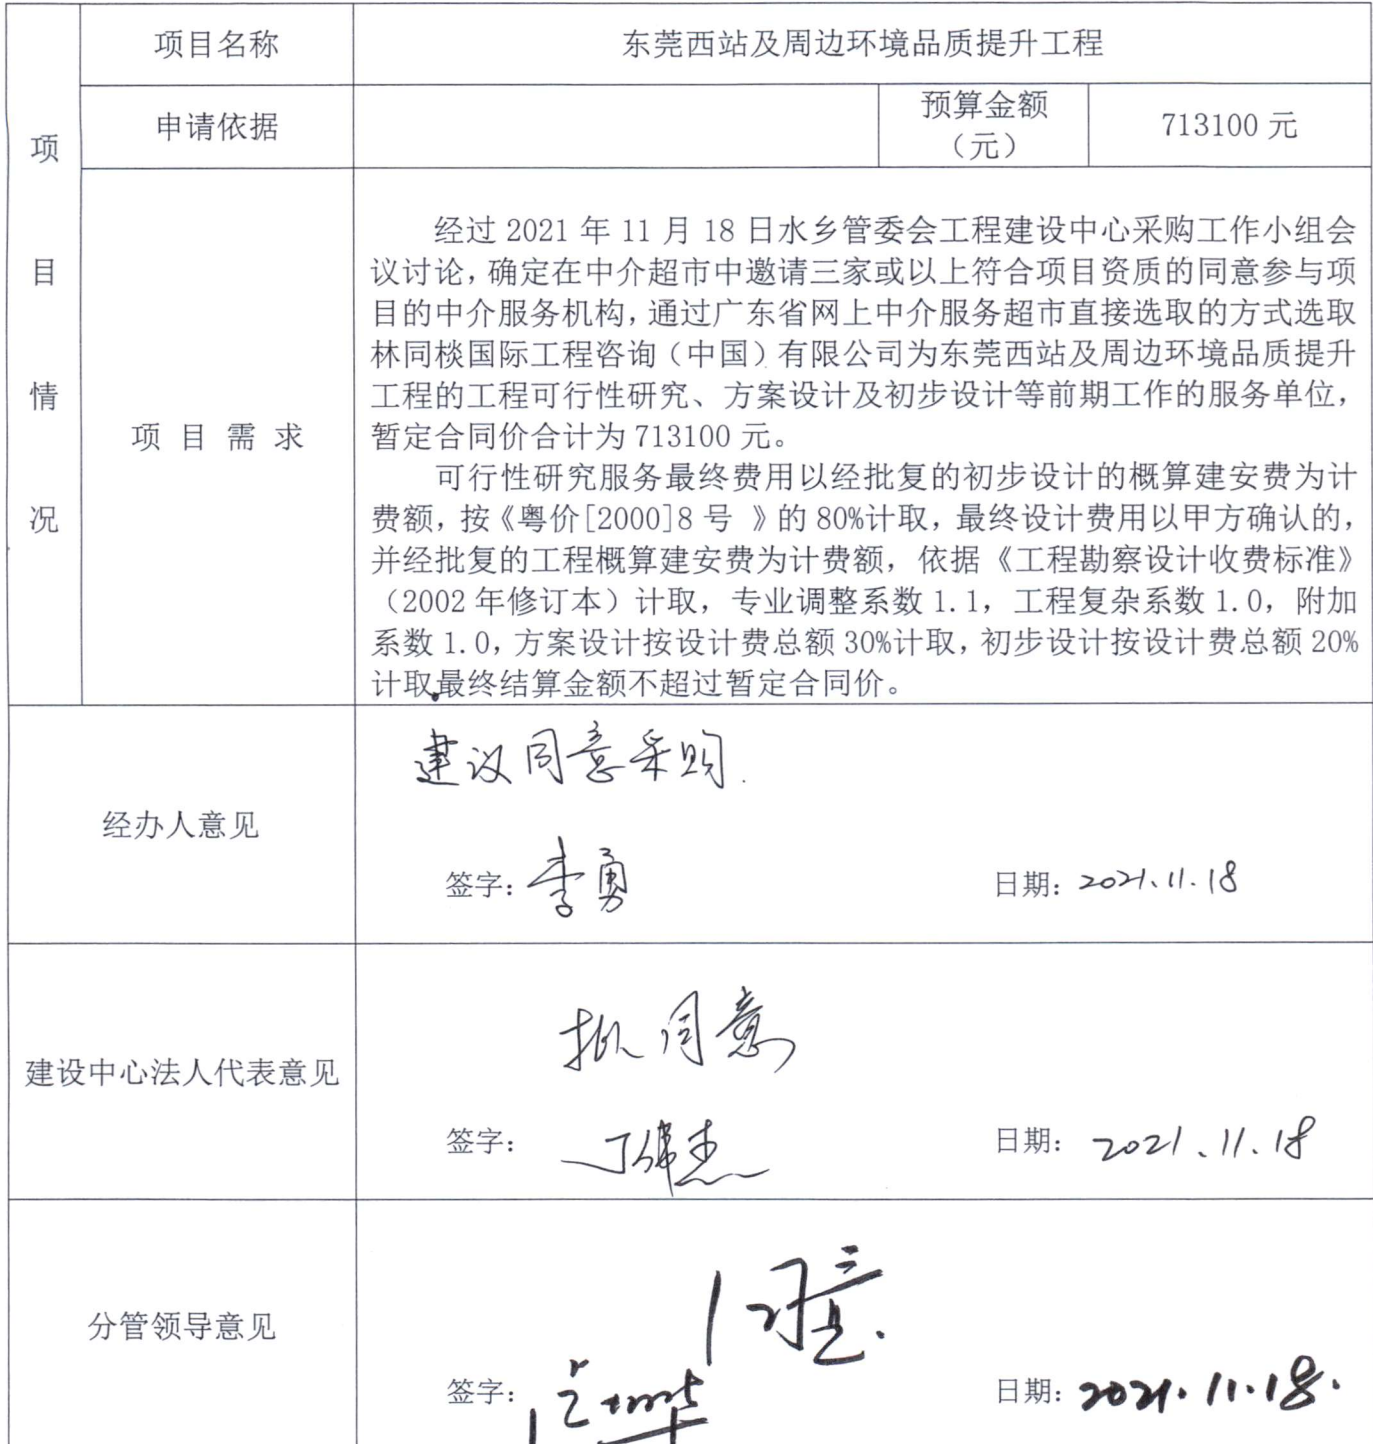 项目名称 东莞西站及周边环境品质提升工程
申请依据 预算金额（元） 713100 元
项目情况
项目需求
经过 2021 年 11 月 18 日水乡管委会工程建设中心采购工作小组会
议讨论，确定在中介超市中邀请三家或以上符合项目资质的同意参与项
目的中介服务机构，通过广东省网上中介服务超市直接选取的方式选取
林同棪国际工程咨询（中国）有限公司为东莞西站及周边环境品质提升
工程的工程可行性研究、方案设计及初步设计等前期工作的服务单位，
暂定合同价合计为 713100 元。
可行性研究服务最终费用以经批复的初步设计的概算建安费为计
费额，按《粤价[2000]8 号 》的 80%计取，最终设计费用以甲方确认的，
并经批复的工程概算建安费为计费额，依据《工程勘察设计收费标准》
（2002 年修订本）计取，专业调整系数 1.1，工程复杂系数 1.0，附加
系数 1.0，方案设计按设计费总额 30%计取，初步设计按设计费总额 20%
计取。最终结算金额不超过暂定合同价。
经办人意见
建议同意采购.
签字：李勇 日期：2021.11.18
建设中心法人代表意见
拟同意
签字：丁伟杰 日期：2021.11.18
分管领导意见
同意.
签字： 日期：2021.11.18.